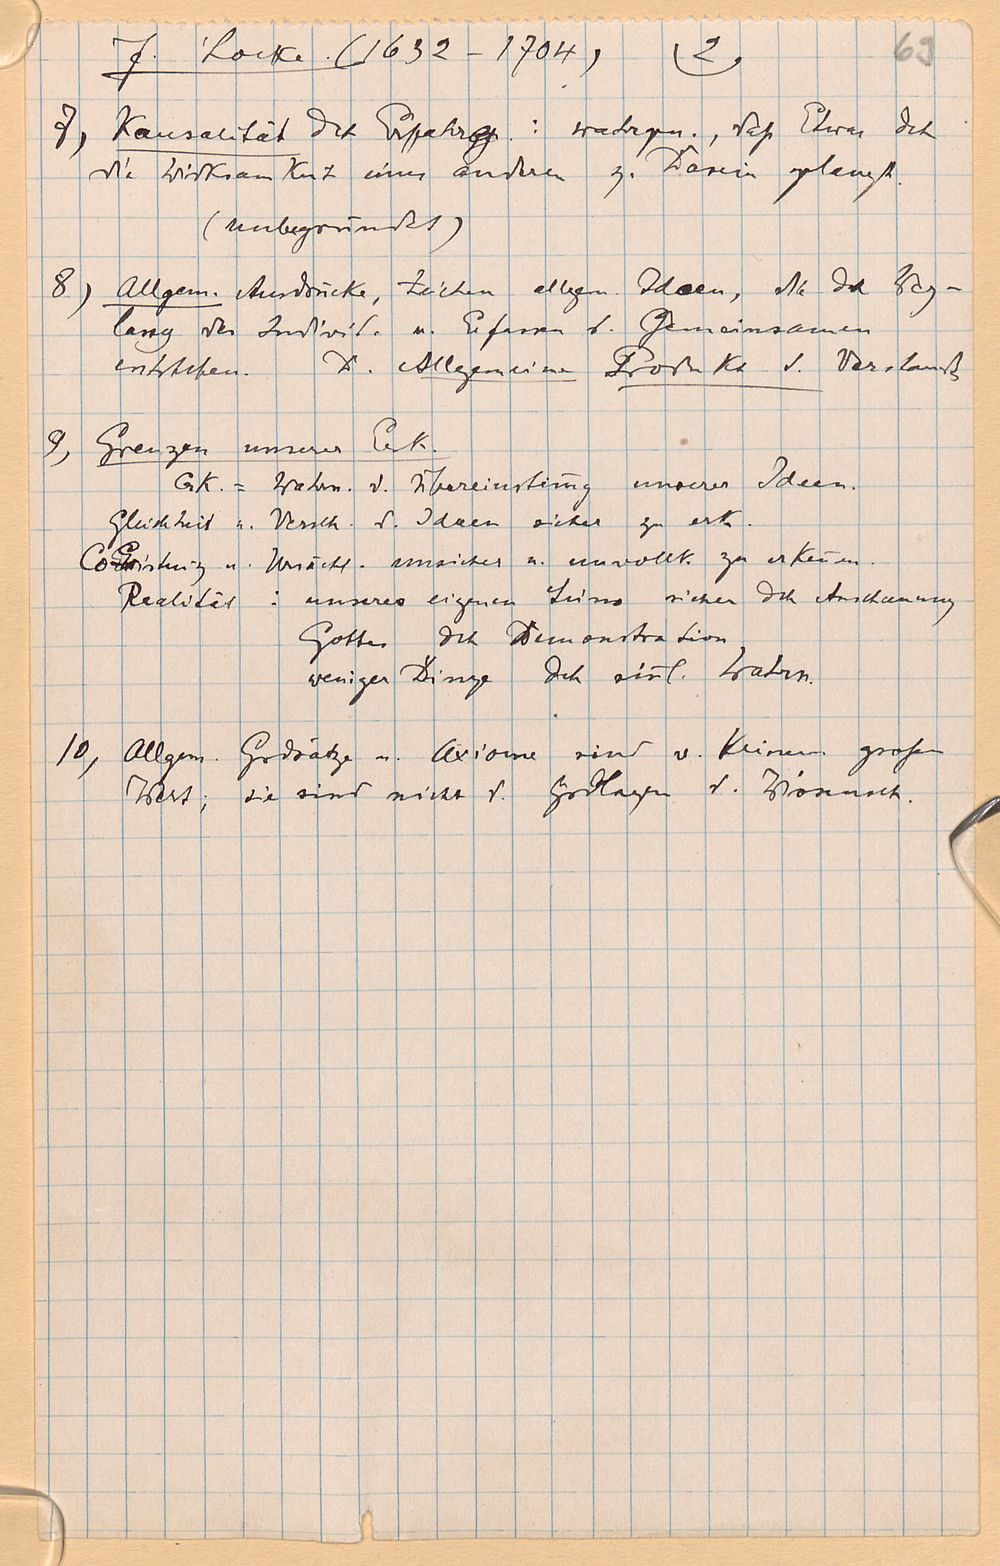 J. Locke (1632 – 1704) 2, 69
7, Kausalität dch Erfahrg. : wahrgen., daß Etwas dch
die Wirksamkeit eines anderen z. Dasein gelangt.
(unbegründet)
8) Allgem. Ausdrücke, Zeichen allgem. Ideen, die dch Weg-
lassg des Individ. u. Erfassen d. Gemeinsamen
entstehen. D. Allgemeine Produkt d. Verstands
9, Grenzen unserer Erk.
Erk. = Wahrn. d. Übereinstim̅g unserer Ideen.
Gleichheit u. Versch. d. Ideen sicher zu erk.
CoExistenz u. Ursächl. unsicher u. unvollk. zu erken̅en.
Realität : unseres eigenen Seins sicher dch Anschauung
Gottes dch Demonstration
weniger Dinge dch sin̅l. Wahrn.
10, Allgem. Grdsätze u. Axiome sind v. keinem großen
Wert; sie sind nicht d. Grdlagen d. Wissensch.